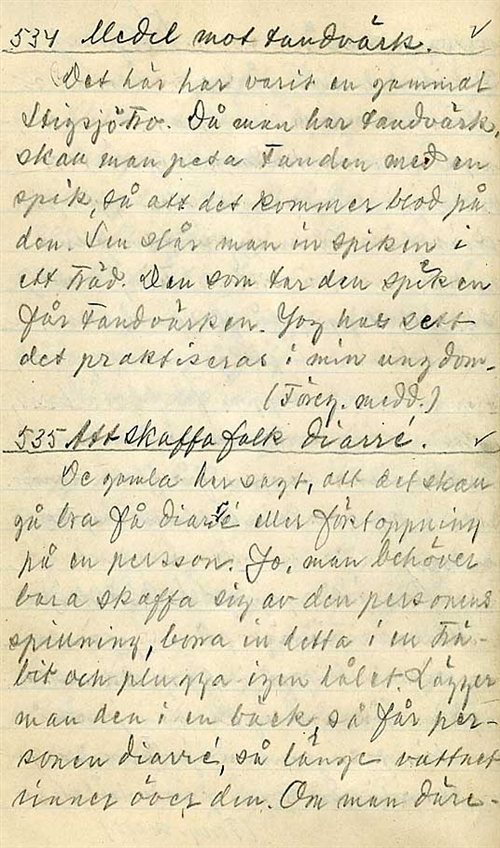 534 Medel mot tandvärk. ✓
Det här har varit en gammal
Stigsjötro. Då man har tandvärk,
skall man peta tanden med en
spik, så att det kommer blod på
den. Sen slår man in spiken i
ett träd. Den som tar den spiken
får tandvärken. Jag har sett
det praktiseras i min ungdom.
(Föreg. medd.)
535 Att skaffa folk diarré. ✓
De gamla har sagt, att det skall
gå bra få diarré eller förstoppning
på en persson. Jo, man behöver
bara skaffa sig av den personens
spillning, borra in detta i en trä-
bit och plugga igen hålet. Lägger
man den i en bäck, så får per-
sonen diarré, så länge vattnet
rinner över den. Om man däre-